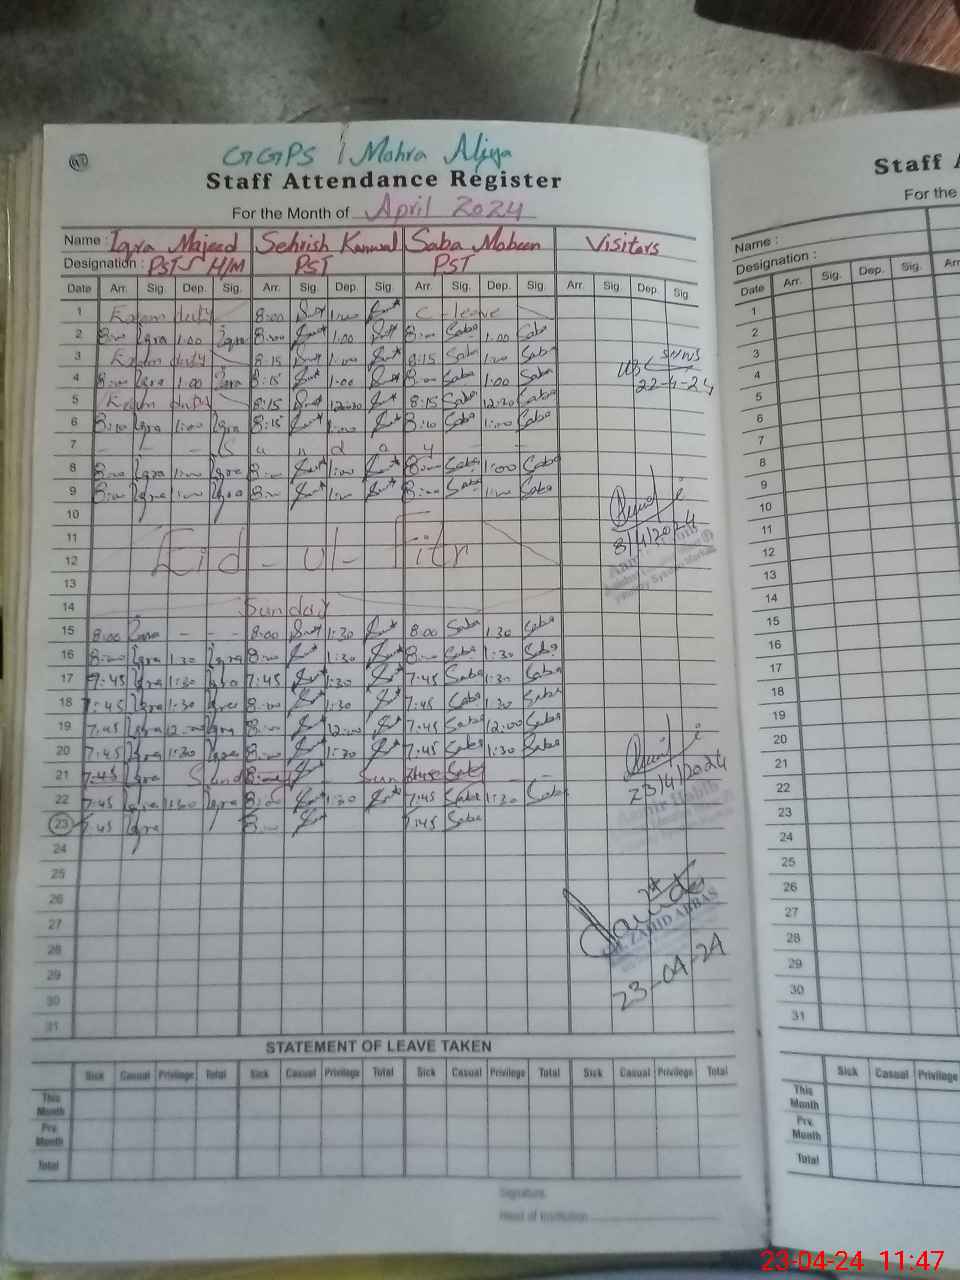 GGPS Mohra Aliya
Staff Attendance Register
For the Month of April 2024
Name : Iqra Majeed Sehrish Kanwal Saba Mobeen Visitors
Designation : PST H/M PST PST
Date Arr. Sig. Dep. Sig. Arr. Sig. Dep. Sig. Arr. Sig. Dep. Sig. Arr. Sig. Dep. Sig.
1 Exam duty 8:00 1:00 C-leave
2 8:00 Iqra 1:00 Iqra 8:00 1:00 8:00 Saba 1:00 Saba
3 Exam duty 8:15 1:00 8:15 Saba 1:00 Saba
4 8:00 Iqra 1:00 Iqra 8:15 1:00 8:00 Saba 1:00 Saba
22-4-24
5 Exam duty 8:15 12:30 8:15 Saba 12:30 Saba
6 8:10 Iqra 1:00 Iqra 8:15 1:00 8:10 Saba 1:00 Saba
7 - - - S u n d a y - -
8 8:00 Iqra 1:00 Iqra 8:00 1:00 8:00 Saba 1:00 Saba
9 8:00 Iqra 1:00 Iqra 8:00 1:00 8:00 Saba 1:00 Saba
10
11
8/4/2024
12 Eid-ul-Fitr
13
14 Sunday
15 8:00 Iqra - - - 8:00 1:30 8:00 Saba 1:30 Saba
16 8:00 Iqra 1:30 Iqra 8:00 1:30 8:00 Saba 1:30 Saba
17 7:45 Iqra 1:30 Iqra 7:45 1:30 7:45 Saba 1:30 Saba
18 7:45 Iqra 1:30 Iqra 8:00 1:30 7:45 Saba 1:30 Saba
19 7:45 Iqra 12:00 Iqra 8:00 12:00 7:45 Saba 12:00 Saba
20 7:45 Iqra 1:30 Iqra 8:00 1:30 7:45 Saba 1:30 Saba
21 7:45 Iqra Sunday 8:00 Sunday 7:45 Saba - -
23/4/2024
22 7:45 Iqra 1:30 Iqra 8:00 1:30 7:45 Saba 1:30 Saba
Aamir Habib
23 7:45 Iqra 8:00 7:45 Saba
24
25
26
27
ZAHID ABBAS
28
29
23-04-24
30
31
STATEMENT OF LEAVE TAKEN
Sick Casual Privilege Total Sick Casual Privilege Total Sick Casual Privilege Total Sick Casual Privilege Total
This Month
Prv. Month
Total
Signature
Head of Institution
Staff
For the
Name :
Designation :
Date Arr. Sig. Dep. Sig.
1
2
3
4
5
6
7
8
9
10
11
12
13
14
15
16
17
18
19
20
21
22
23
24
25
26
27
28
29
30
31
Sick Casual Privilege
This Month
Prv. Month
Total
23-04-24 11:47